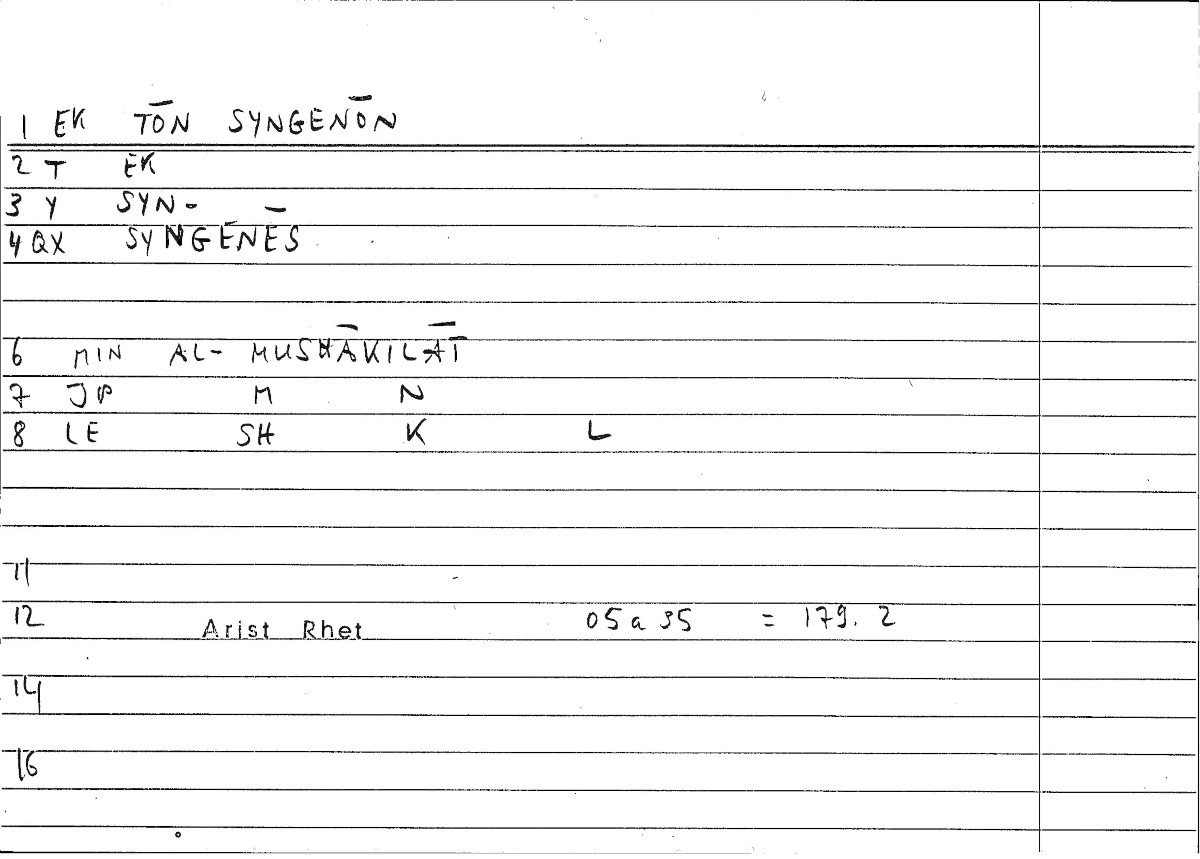 1 EK TŌN SYNGENŌN
2 T EK
3 Y SYN-
4 QX SYNGENĒS
6 MIN AL- MUSHĀKILĀT
7 JP M N
8 LE SH K L
11
12 Arist Rhet 05 a 35 = 179. 2
14
16